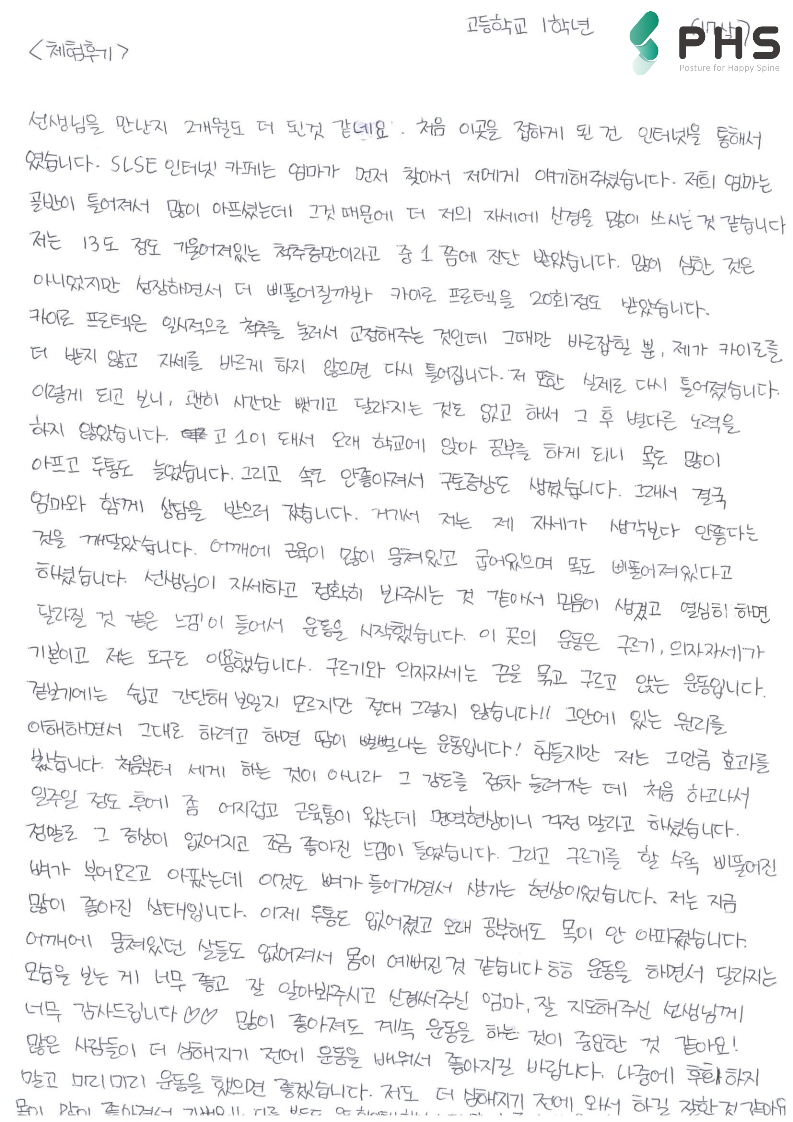 고등학교 1학년 (17살)
PHS
Posture for Happy Spine
<체험후기>
선생님을 만난지 2개월도 더 된것 같네요. 처음 이곳을 접하게 된 건 인터넷을 통해서
였습니다. SLSE 인터넷 카페는 엄마가 먼저 찾아서 저에게 얘기해주셨습니다. 저희 엄마는
골반이 틀어져서 많이 아프셨는데 그것 때문에 더 저의 자세에 신경을 많이 쓰시는 것 같습니다
저는 13도 정도 기울어져있는 척추측만이라고 중1 쯤에 진단 받았습니다. 많이 심한 것은
아니었지만 성장하면서 더 삐뚤어질까봐 카이로 프로텍을 20회정도 받았습니다.
카이로 프로텍은 일시적으로 척추를 눌러서 교정해주는 것인데 그때만 바로잡힐 뿐, 제가 카이로를
더 받지 않고 자세를 바르게 하지 않으면 다시 틀어집니다. 저 또한 실제로 다시 틀어졌습니다.
이렇게 되고 보니, 괜히 시간만 뺏기고 달라지는 것도 없고 해서 그 후 별다른 노력을
하지 않았습니다. 고1이 돼서 오래 학교에 앉아 공부를 하게 되니 목도 많이
아프고 두통도 늘었습니다. 그리고 속도 안좋아져서 구토증상도 생겼습니다. 그래서 결국
엄마와 함께 상담을 받으러 갔습니다. 거기서 저는 제 자세가 생각보다 안좋다는
것을 깨달았습니다. 어깨에 근육이 많이 뭉쳐있고 굽어있으며 목도 삐뚤어져있다고
하셨습니다. 선생님이 자세하고 정확히 봐주시는 것 같아서 믿음이 생겼고 열심히 하면
달라질 것 같은 느낌이 들어서 운동을 시작했습니다. 이 곳의 운동은 구르기, 의자자세가
기본이고 저는 도구도 이용했습니다. 구르기와 의자자세는 끈을 묶고 구르고 앉는 운동입니다.
겉보기에는 쉽고 간단해 보일지 모르지만 절대 그렇지 않습니다!! 그안에 있는 원리를
이해하면서 그대로 하려고 하면 땀이 뻘뻘나는 운동입니다! 힘들지만 저는 그만큼 효과를
봤습니다. 처음부터 세게 하는 것이 아니라 그 강도를 점차 늘려가는 데 처음 하고나서
일주일 정도 후에 좀 어지럽고 근육통이 왔는데 면역현상이니 걱정 말라고 하셨습니다.
정말로 그 증상이 없어지고 조금 좋아진 느낌이 들었습니다. 그리고 구르기를 할 수록 삐뚤어진
뼈가 부어오르고 아팠는데 이것도 뼈가 들어가면서 생기는 현상이었습니다. 저는 지금
많이 좋아진 상태입니다. 이제 두통도 없어졌고 오래 공부해도 목이 안 아파졌습니다.
어깨에 뭉쳐있던 살들도 없어져서 몸이 예뻐진 것 같습니다 ㅎㅎ 운동을 하면서 달라지는
모습을 보는 게 너무 좋고 잘 알아봐주시고 신경써주신 엄마, 잘 지도해주신 선생님께
너무 감사드립니다 ♡♡ 많이 좋아져도 계속 운동을 하는 것이 중요한 것 같아요!
많은 사람들이 더 심해지기 전에 운동을 배워서 좋아지길 바랍니다. 나중에 후회하지
말고 미리미리 운동을 했으면 좋겠습니다. 저도 더 심해지기 전에 와서 하길 잘한 것 같아요
몸이 많이 좋아져서 기뻐요!!